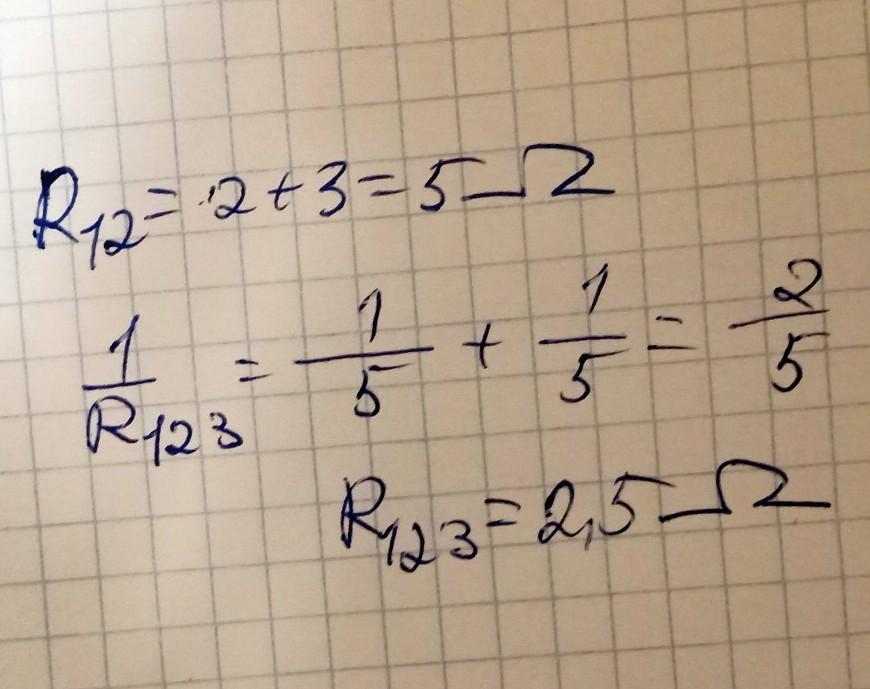 R₁₂ = 2 + 3 = 5 Ω
1/R₁₂₃ = 1/5 + 1/5 = 2/5
R₁₂₃ = 2,5 Ω